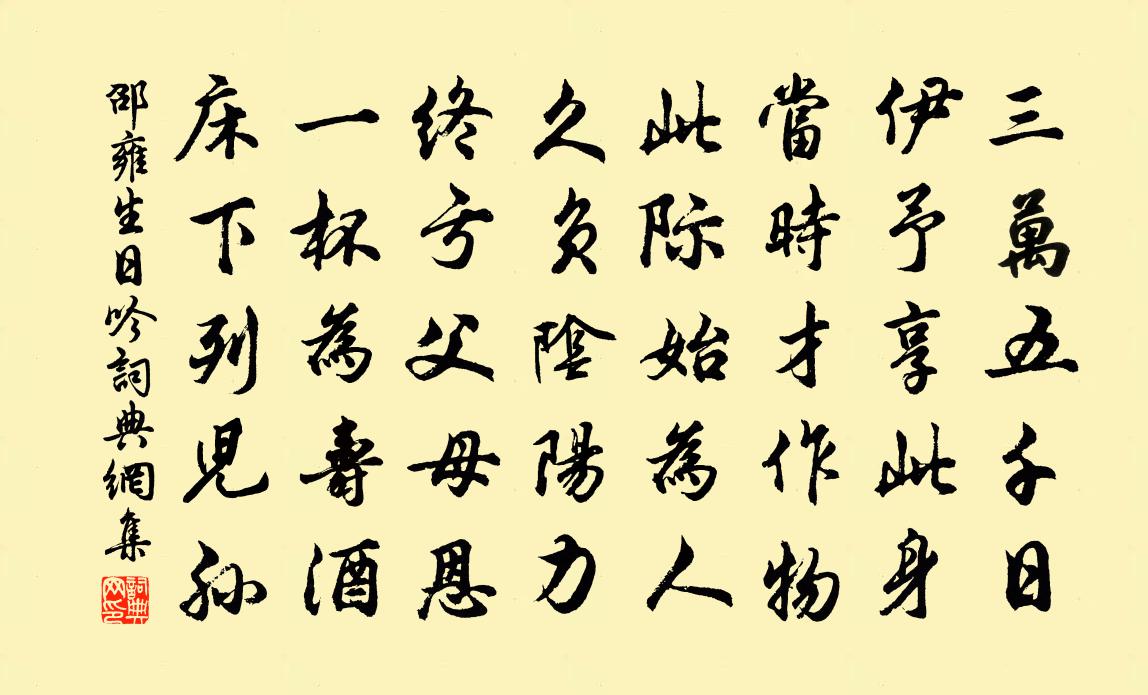 三萬五千日
伊予享此身
當時才作物
此際始為人
久負陰陽力
終亏父母恩
一杯為壽酒
床下列兒孫
邵雍生日吟詞典網集
詞典
网印